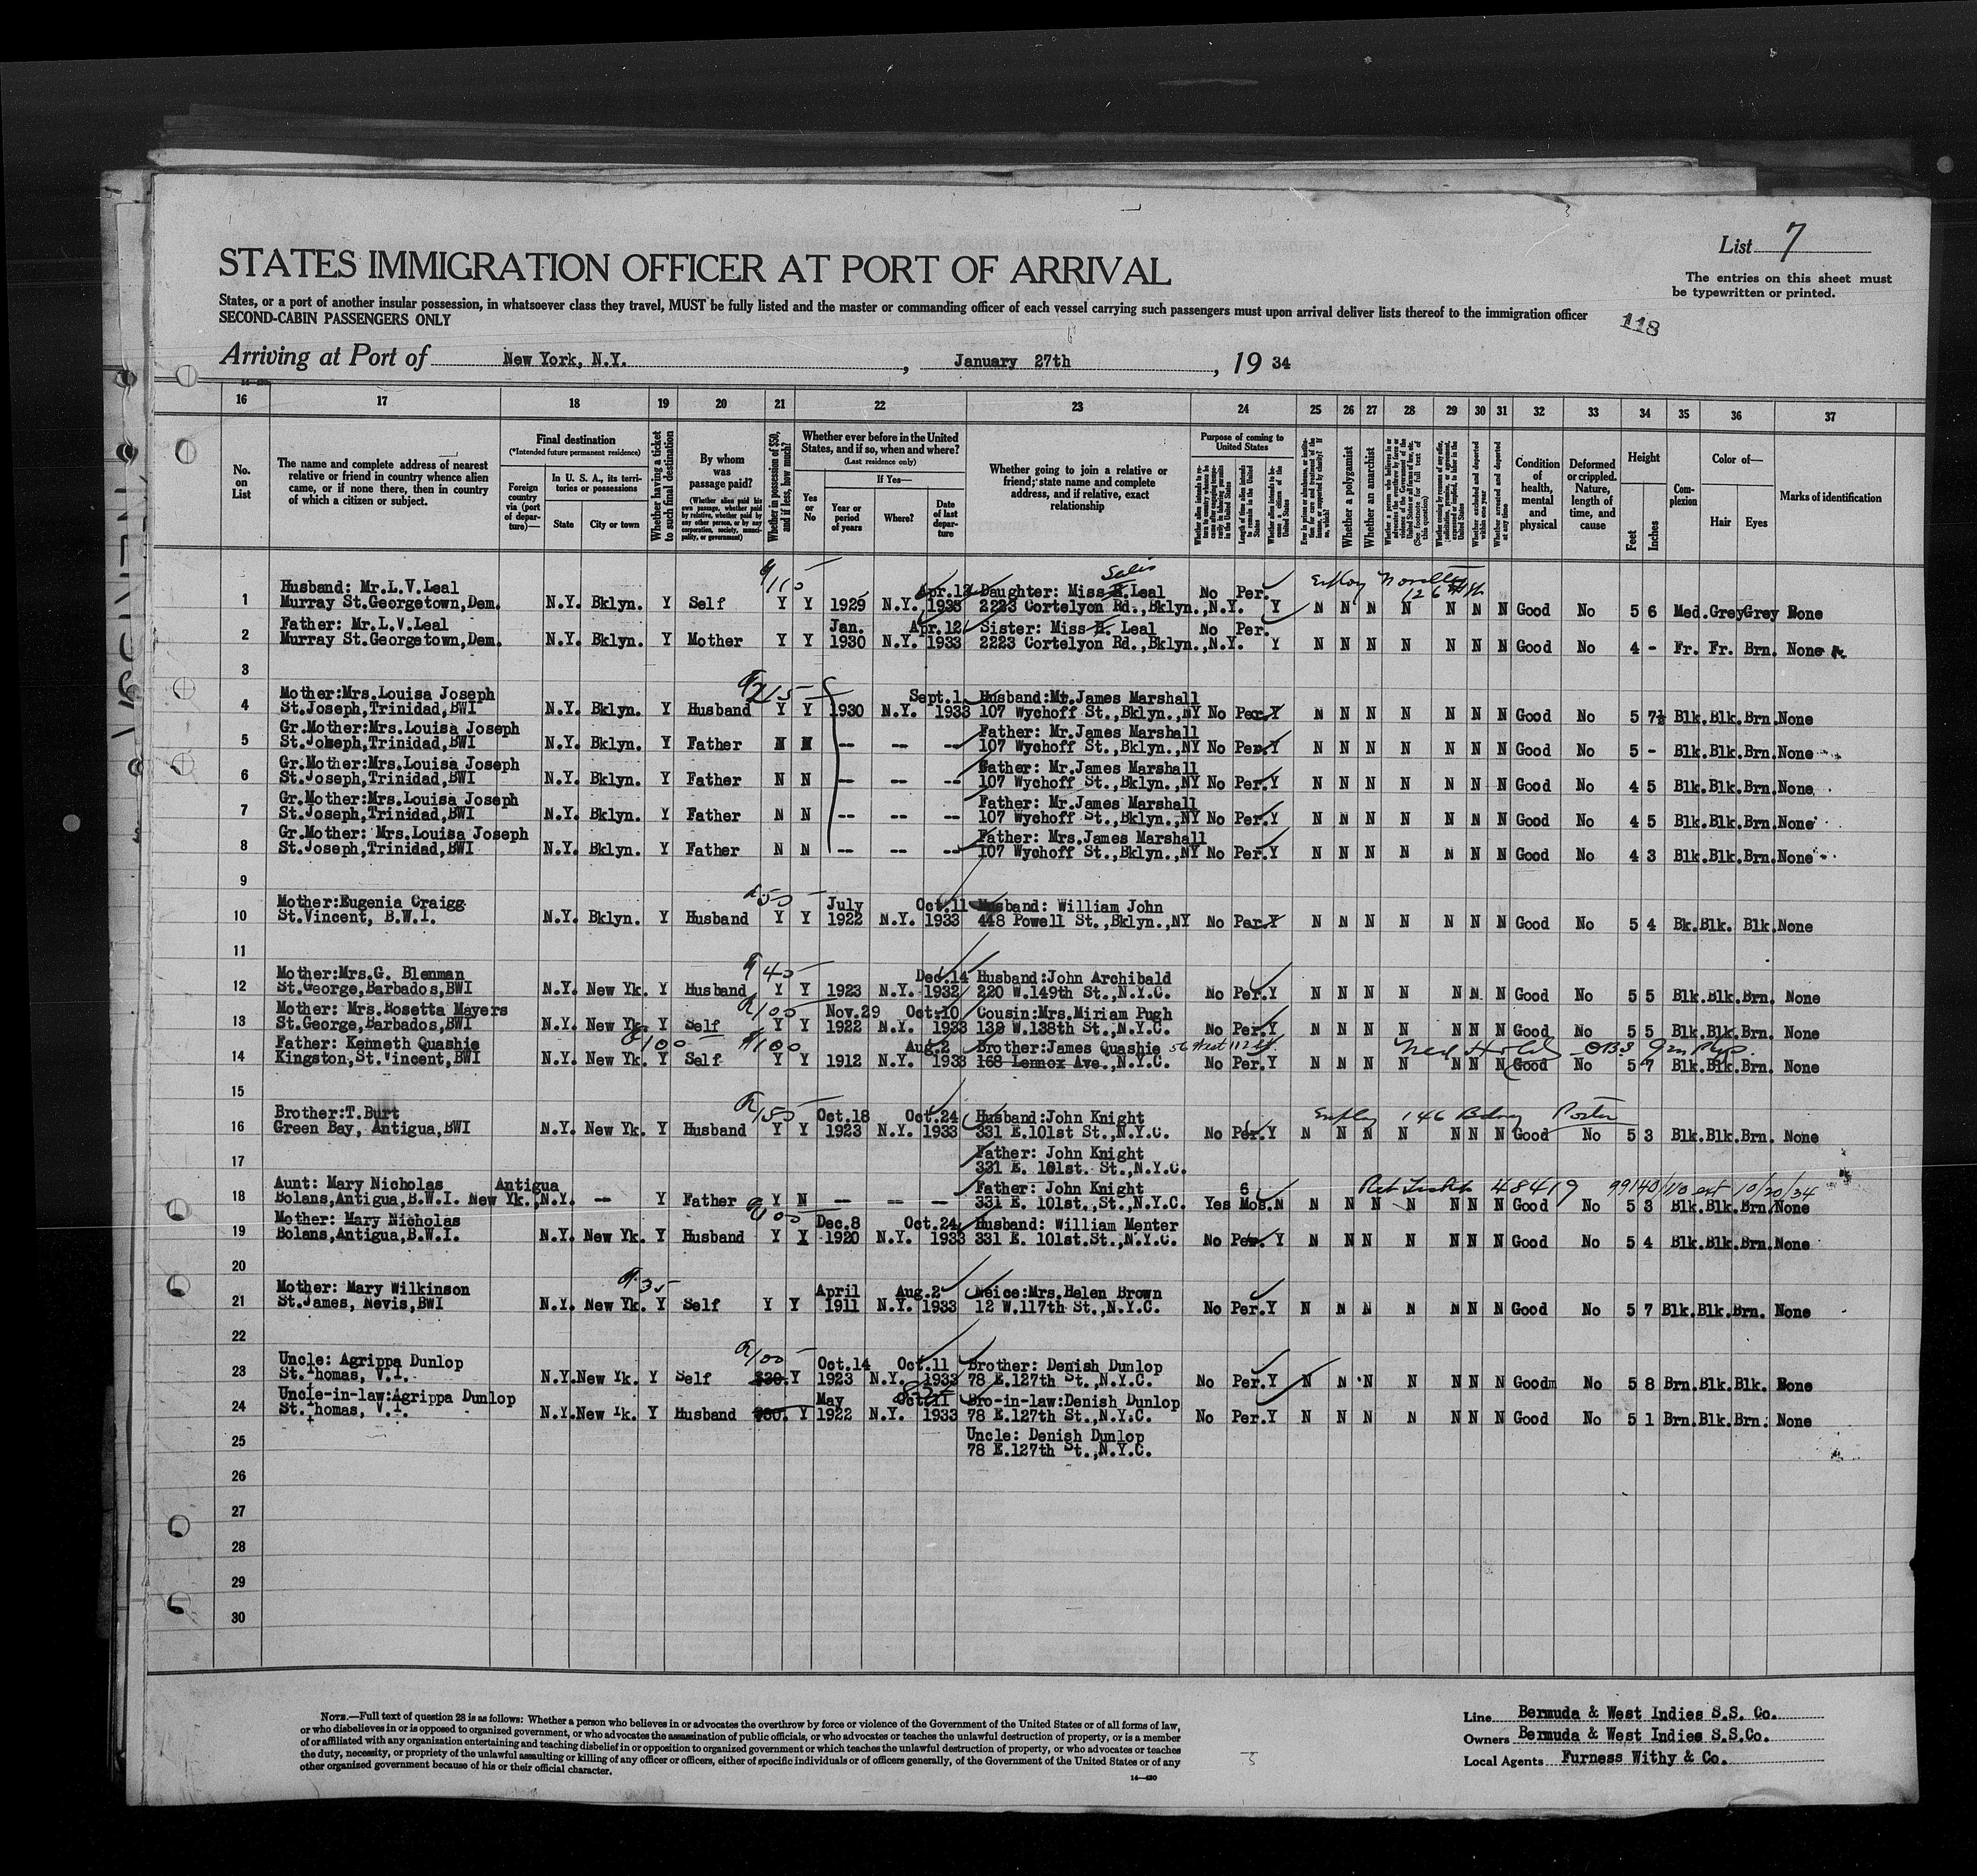 List 7
STATES IMMIGRATION OFFICER AT PORT OF ARRIVAL
The entries on this sheet must
be typewritten or printed.
States, or a port of another insular possession, in whatsoever class they travel, MUST be fully listed and the master or commanding officer of each vessel carrying such passengers must upon arrival deliver lists thereof to the immigration officer
SECOND-CABIN PASSENGERS ONLY
118
Arriving at Port of New York, N.Y. , January 27th , 19 34
16 17 18 19 20 21 22 23 24 25 26 27 28 29 30 31 32 33 34 35 36 37
No. on List
The name and complete address of nearest relative or friend in country whence alien came, or if none there, then in country of which a citizen or subject.
Final destination
(*Intended future permanent residence)
Foreign country via (port of departure)—
In U. S. A., its territories or possessions
State
City or town
Whether having a ticket to such final destination
By whom was passage paid?
(Whether alien paid his own passage, whether paid by relative, whether paid by any other person, or by any corporation, society, municipality, or government)
Whether in possession of $50, and if less, how much?
Whether ever before in the United States, and if so, when and where?
(Last residence only)
Yes or No
If Yes—
Year or period of years
Where?
Date of last departure
Whether going to join a relative or friend; state name and complete address, and if relative, exact relationship
Purpose of coming to United States
Length of time alien intends to remain in the United States
Whether alien intends to become a citizen of the United States
Whether a polygamist
Whether an anarchist
Whether arrested and deported at any time
Condition of health, mental and physical
Deformed or crippled. Nature, length of time, and cause
Height
Feet
Inches
Complexion
Color of—
Hair
Eyes
Marks of identification
1 Husband: Mr.L.V.Leal Apr.12 Daughter: Miss Leal No Per.
Murray St.Georgetown,Dem. N.Y. Bklyn. Y Self Y Y 1929 N.Y. 1933 2223 Cortelyon Rd.,Bklyn.,N.Y. Y N N N N N N N Good No 5 6 Med. Grey Grey None
2 Father: Mr.L.V.Leal Jan. Apr.12 Sister: Miss Leal No Per.
Murray St.Georgetown,Dem. N.Y. Bklyn. Y Mother Y Y 1930 N.Y. 1933 2223 Cortelyon Rd.,Bklyn.,N.Y. Y N N N N N N N Good No 4 - Fr. Fr. Brn. None
3
4 Mother:Mrs.Louisa Joseph Sept.1 Husband:Mr.James Marshall
St.Joseph,Trinidad,BWI N.Y. Bklyn. Y Husband Y Y 1930 N.Y. 1933 107 Wychoff St.,Bklyn.,NY No Per.Y N N N N N N N Good No 5 7½ Blk.Blk.Brn.None
5 Gr.Mother:Mrs.Louisa Joseph Father: Mr.James Marshall
St.Joseph,Trinidad,BWI N.Y. Bklyn. Y Father N N -- -- -- 107 Wychoff St.,Bklyn.,NY No Per.Y N N N N N N N Good No 5 - Blk.Blk.Brn.None
6 Gr.Mother:Mrs.Louisa Joseph Father: Mr.James Marshall
St.Joseph,Trinidad,BWI N.Y. Bklyn. Y Father N N -- -- -- 107 Wychoff St.,Bklyn.,NY No Per.Y N N N N N N N Good No 4 5 Blk.Blk.Brn.None
7 Gr.Mother:Mrs.Louisa Joseph Father: Mr.James Marshall
St.Joseph,Trinidad,BWI N.Y. Bklyn. Y Father N N -- -- -- 107 Wychoff St.,Bklyn.,NY No Per.Y N N N N N N N Good No 4 5 Blk.Blk.Brn.None
8 Gr.Mother: Mrs.Louisa Joseph Father: Mrs.James Marshall
St.Joseph,Trinidad,BWI N.Y. Bklyn. Y Father N N -- -- -- 107 Wychoff St.,Bklyn.,NY No Per.Y N N N N N N N Good No 4 3 Blk.Blk.Brn.None
9
10 Mother:Eugenia Craigg July Oct.11 Husband: William John
St.Vincent, B.W.I. N.Y. Bklyn. Y Husband Y Y 1922 N.Y. 1933 448 Powell St.,Bklyn.,NY No Per.Y N N N N N N N Good No 5 4 Bk.Blk. Blk.None
11
12 Mother:Mrs.G. Blenman 40 Dec.14 Husband:John Archibald
St.George,Barbados,BWI N.Y. New Yk. Y Husband Y Y 1923 N.Y. 1932 220 W.149th St.,N.Y.C. No Per.Y N N N N N N N Good No 5 5 Blk.Blk.Brn. None
13 Mother: Mrs.Rosetta Mayers 100 Nov.29 Oct.10 Cousin:Mrs.Miriam Pugh
St.George,Barbados,BWI N.Y. New Yk. Y Self Y Y 1922 N.Y. 1933 138 W.138th St.,N.Y.C. No Per.Y N N N N N N N Good No 5 5 Blk.Blk.Brn. None
14 Father: Kenneth Quashie 100 100 Aug.2 Brother:James Quashie
Kingston,St.Vincent,BWI N.Y. New Yk. Y Self Y Y 1912 N.Y. 1933 168 Lennox Ave.,N.Y.C. No Per.Y N N N N N N N Good No 5 7 Blk.Blk.Brn. None
15
16 Brother:T.Burt Oct.18 Oct.24 Husband:John Knight
Green Bay, Antigua,BWI N.Y. New Yk. Y Husband Y Y 1923 N.Y. 1933 331 E.101st St.,N.Y.C. No Per.Y N N N N N N N Good No 5 3 Blk.Blk.Brn. None
17 Father: John Knight
331 E. 101st. St.,N.Y.C.
18 Aunt: Mary Nicholas Antigua Father: John Knight 6 48419 10/20/34
Bolans,Antigua,B.W.I. New Yk. N.Y. -- Y Father Y N -- -- -- 331 E. 101st.,St.,N.Y.C. Yes Mos.N N N N N N N N Good No 5 3 Blk.Blk.Brn.None
19 Mother: Mary Nicholas Dec.8 Oct.24 Husband: William Menter
Bolans,Antigua,B.W.I. N.Y. New Yk. Y Husband Y Y 1920 N.Y. 1933 331 E. 101st.St.,N.Y.C. No Per. Y N N N N N N N Good No 5 4 Blk.Blk.Brn.None
20
21 Mother: Mary Wilkinson 35 April Aug.2 Neice:Mrs.Helen Brown
St.James, Nevis,BWI N.Y. New Yk. Y Self Y Y 1911 N.Y. 1933 12 W.117th St.,N.Y.C. No Per.Y N N N N N N N Good No 5 7 Blk.Blk.Brn. None
22
23 Uncle: Agrippa Dunlop 100 Oct.14 Oct.11 Brother: Denish Dunlop
St.Thomas, V.I. N.Y. New Yk. Y Self $30. Y 1923 N.Y. 1933 78 E.127th St.,N.Y.C. No Per.Y N N N N N N N Goodm No 5 8 Brn.Blk.Blk. None
24 Uncle-in-law:Agrippa Dunlop May Oct.11 Bro-in-law:Denish Dunlop
St.Thomas, V.I. N.Y. New Yk. Y Husband Y 1922 N.Y. 1933 78 E.127th St.,N.Y.C. No Per.Y N N N N N N N Good No 5 1 Brn.Blk.Brn. None
25 Uncle: Denish Dunlop
78 E.127th St.,N.Y.C.
26
27
28
29
30
NOTE.—Full text of question 28 is as follows: Whether a person who believes in or advocates the overthrow by force or violence of the Government of the United States or of all forms of law,
or who disbelieves in or is opposed to organized government, or who advocates the assassination of public officials, or who advocates or teaches the unlawful destruction of property, or is a member
of or affiliated with any organization entertaining and teaching disbelief in or opposition to organized government or which teaches the unlawful destruction of property, or who advocates or teaches
the duty, necessity, or propriety of the unlawful assaulting or killing of any officer or officers, either of specific individuals or of officers generally, of the Government of the United States or of any
other organized government because of his or their official character.
14—430
Line Bermuda & West Indies S.S. Co.
Owners Bermuda & West Indies S.S.Co.
Local Agents Furness Withy & Co.